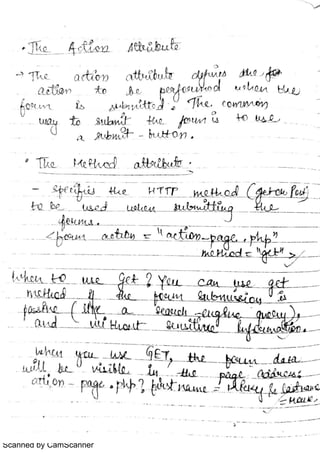 · The Action Attribute
→ The action attribute defines the
action to be performed when the
form is submitted. The common
way to submit the form is to use
a submit - button.
· The Method attribute :
- specifies the HTTP method (get or Post)
to be used when submitting the
forms.
<form action = "action_page.php"
method = "get" >
When to use Get ? You can use get
method if the form submission is
passive ( like a search-engine query ),
and without sensitive information.
when you use GET, the form data
will be visible in the page address:
action - page .php? first name = Mickey & lastname
= Mouse
Scanned by CamScanner